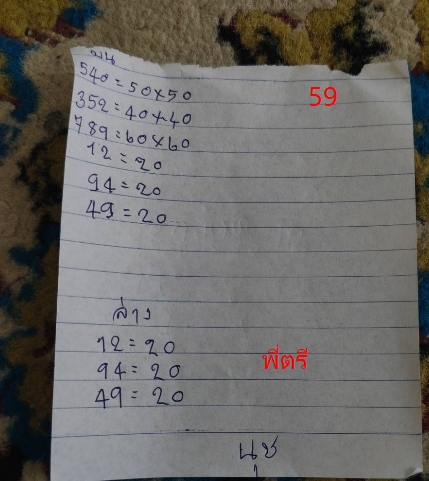 บน
540=50×50
59
352=40×40
789=60×60
12=20
94=20
49=20
ล่าง
12=20
พี่ตรี
94=20
49=20
นุช